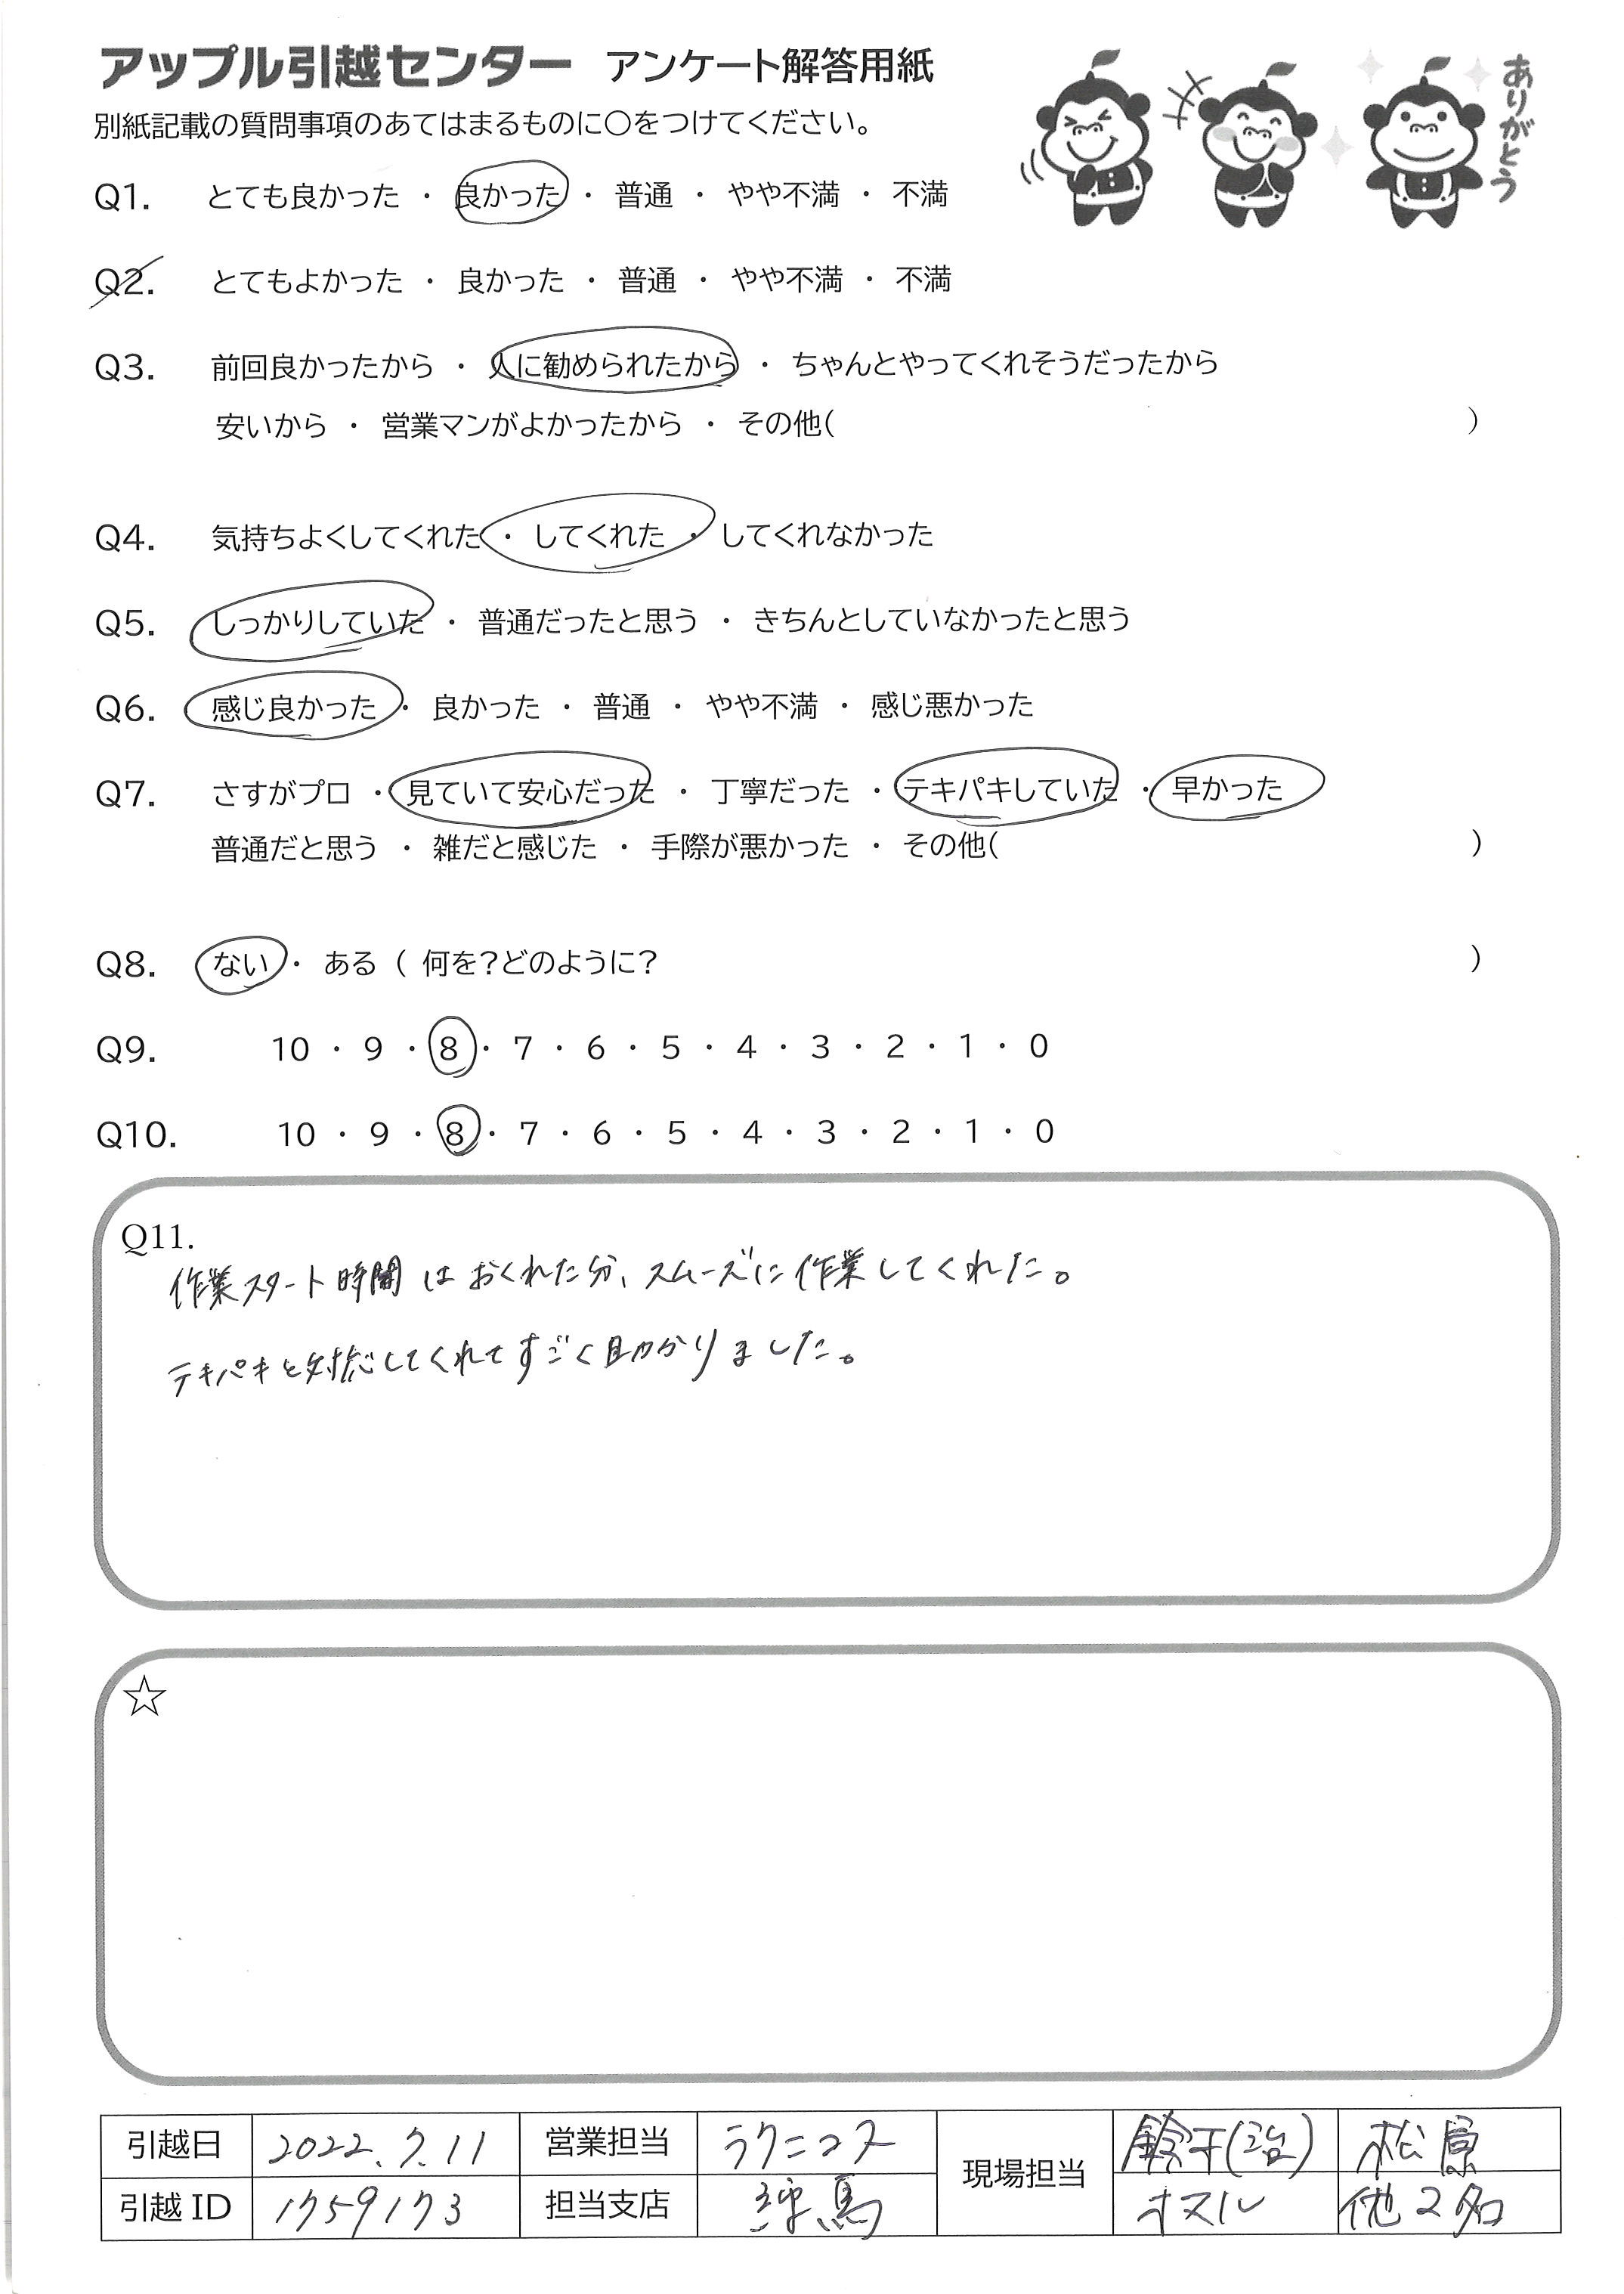 アップル引越センター アンケート解答用紙
ありがとう
別紙記載の質問事項のあてはまるものに○をつけてください。
Q1. とても良かった ・ 良かった ・ 普通 ・ やや不満 ・ 不満
Q2. とてもよかった ・ 良かった ・ 普通 ・ やや不満 ・ 不満
Q3. 前回良かったから ・ 人に勧められたから ・ ちゃんとやってくれそうだったから
安いから ・ 営業マンがよかったから ・ その他( )
Q4. 気持ちよくしてくれた ・ してくれた ・ してくれなかった
Q5. しっかりしていた ・ 普通だったと思う ・ きちんとしていなかったと思う
Q6. 感じ良かった ・ 良かった ・ 普通 ・ やや不満 ・ 感じ悪かった
Q7. さすがプロ ・ 見ていて安心だった ・ 丁寧だった ・ テキパキしていた ・ 早かった
普通だと思う ・ 雑だと感じた ・ 手際が悪かった ・ その他( )
Q8. ない ・ ある ( 何を?どのように? )
Q9. 10 ・ 9 ・ 8 ・ 7 ・ 6 ・ 5 ・ 4 ・ 3 ・ 2 ・ 1 ・ 0
Q10. 10 ・ 9 ・ 8 ・ 7 ・ 6 ・ 5 ・ 4 ・ 3 ・ 2 ・ 1 ・ 0
Q11.
作業スタート時間はおくれた分、スムーズに作業してくれた。
テキパキと対応してくれてすごく助かりました。
☆
引越日 2022.7.11 営業担当 ラクニコス 現場担当 松原
引越ID 1759173 担当支店 練馬 オスル 他2名